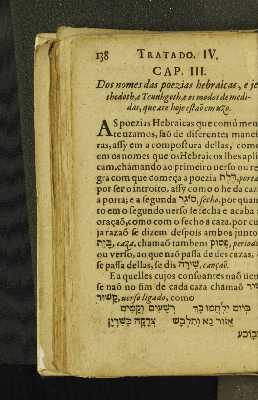 138 TRATADO. IV.
CAP. III.
Dos nomes das poezias hebraicas, e je
shedotha Tenunghotha os modos de medi-
das, que ate hoje estaõ em uzo.
AS poezias Hebraicas que comúmen
te uzamos, saõ de diferentes manei
ras, assy em a compostura dellas, como
em os nomes que os Hebraicos lhes apli
cam, chàmando ao primeiro verso ou re
gra com que começa a poezia דֶלֶת, porta
por ser o introito, assy como o he da caza
a porta; e a segunda סוֹגֵר, fecho, por quan
to em o segundo verso se fecha e acaba
oraçaõ, como com o fecho a caza, por cu
ja razaõ se dizem despois ambos junto
בַּיִת, caza, chamaõ tambem פָּסוּק, periodo
ou verso, ao que naõ passa de dez cazas,
se passa dellas, se dis שִׁירָה, cançaõ.
E a quelles cujos consoantes naõ uem
se naõ no fim de cada caza chàmaõ שִׁיר
קָשׁוּר, verso ligado, como
בְּיוֹם יִלָּחֲמוּ בָךְ רְשָׁעִים וְקָמִים
אֱזוֹר נָא וְתִלְבַּשׁ צְדָקָה כְּשִׁרְיָן
וּבֹכַע